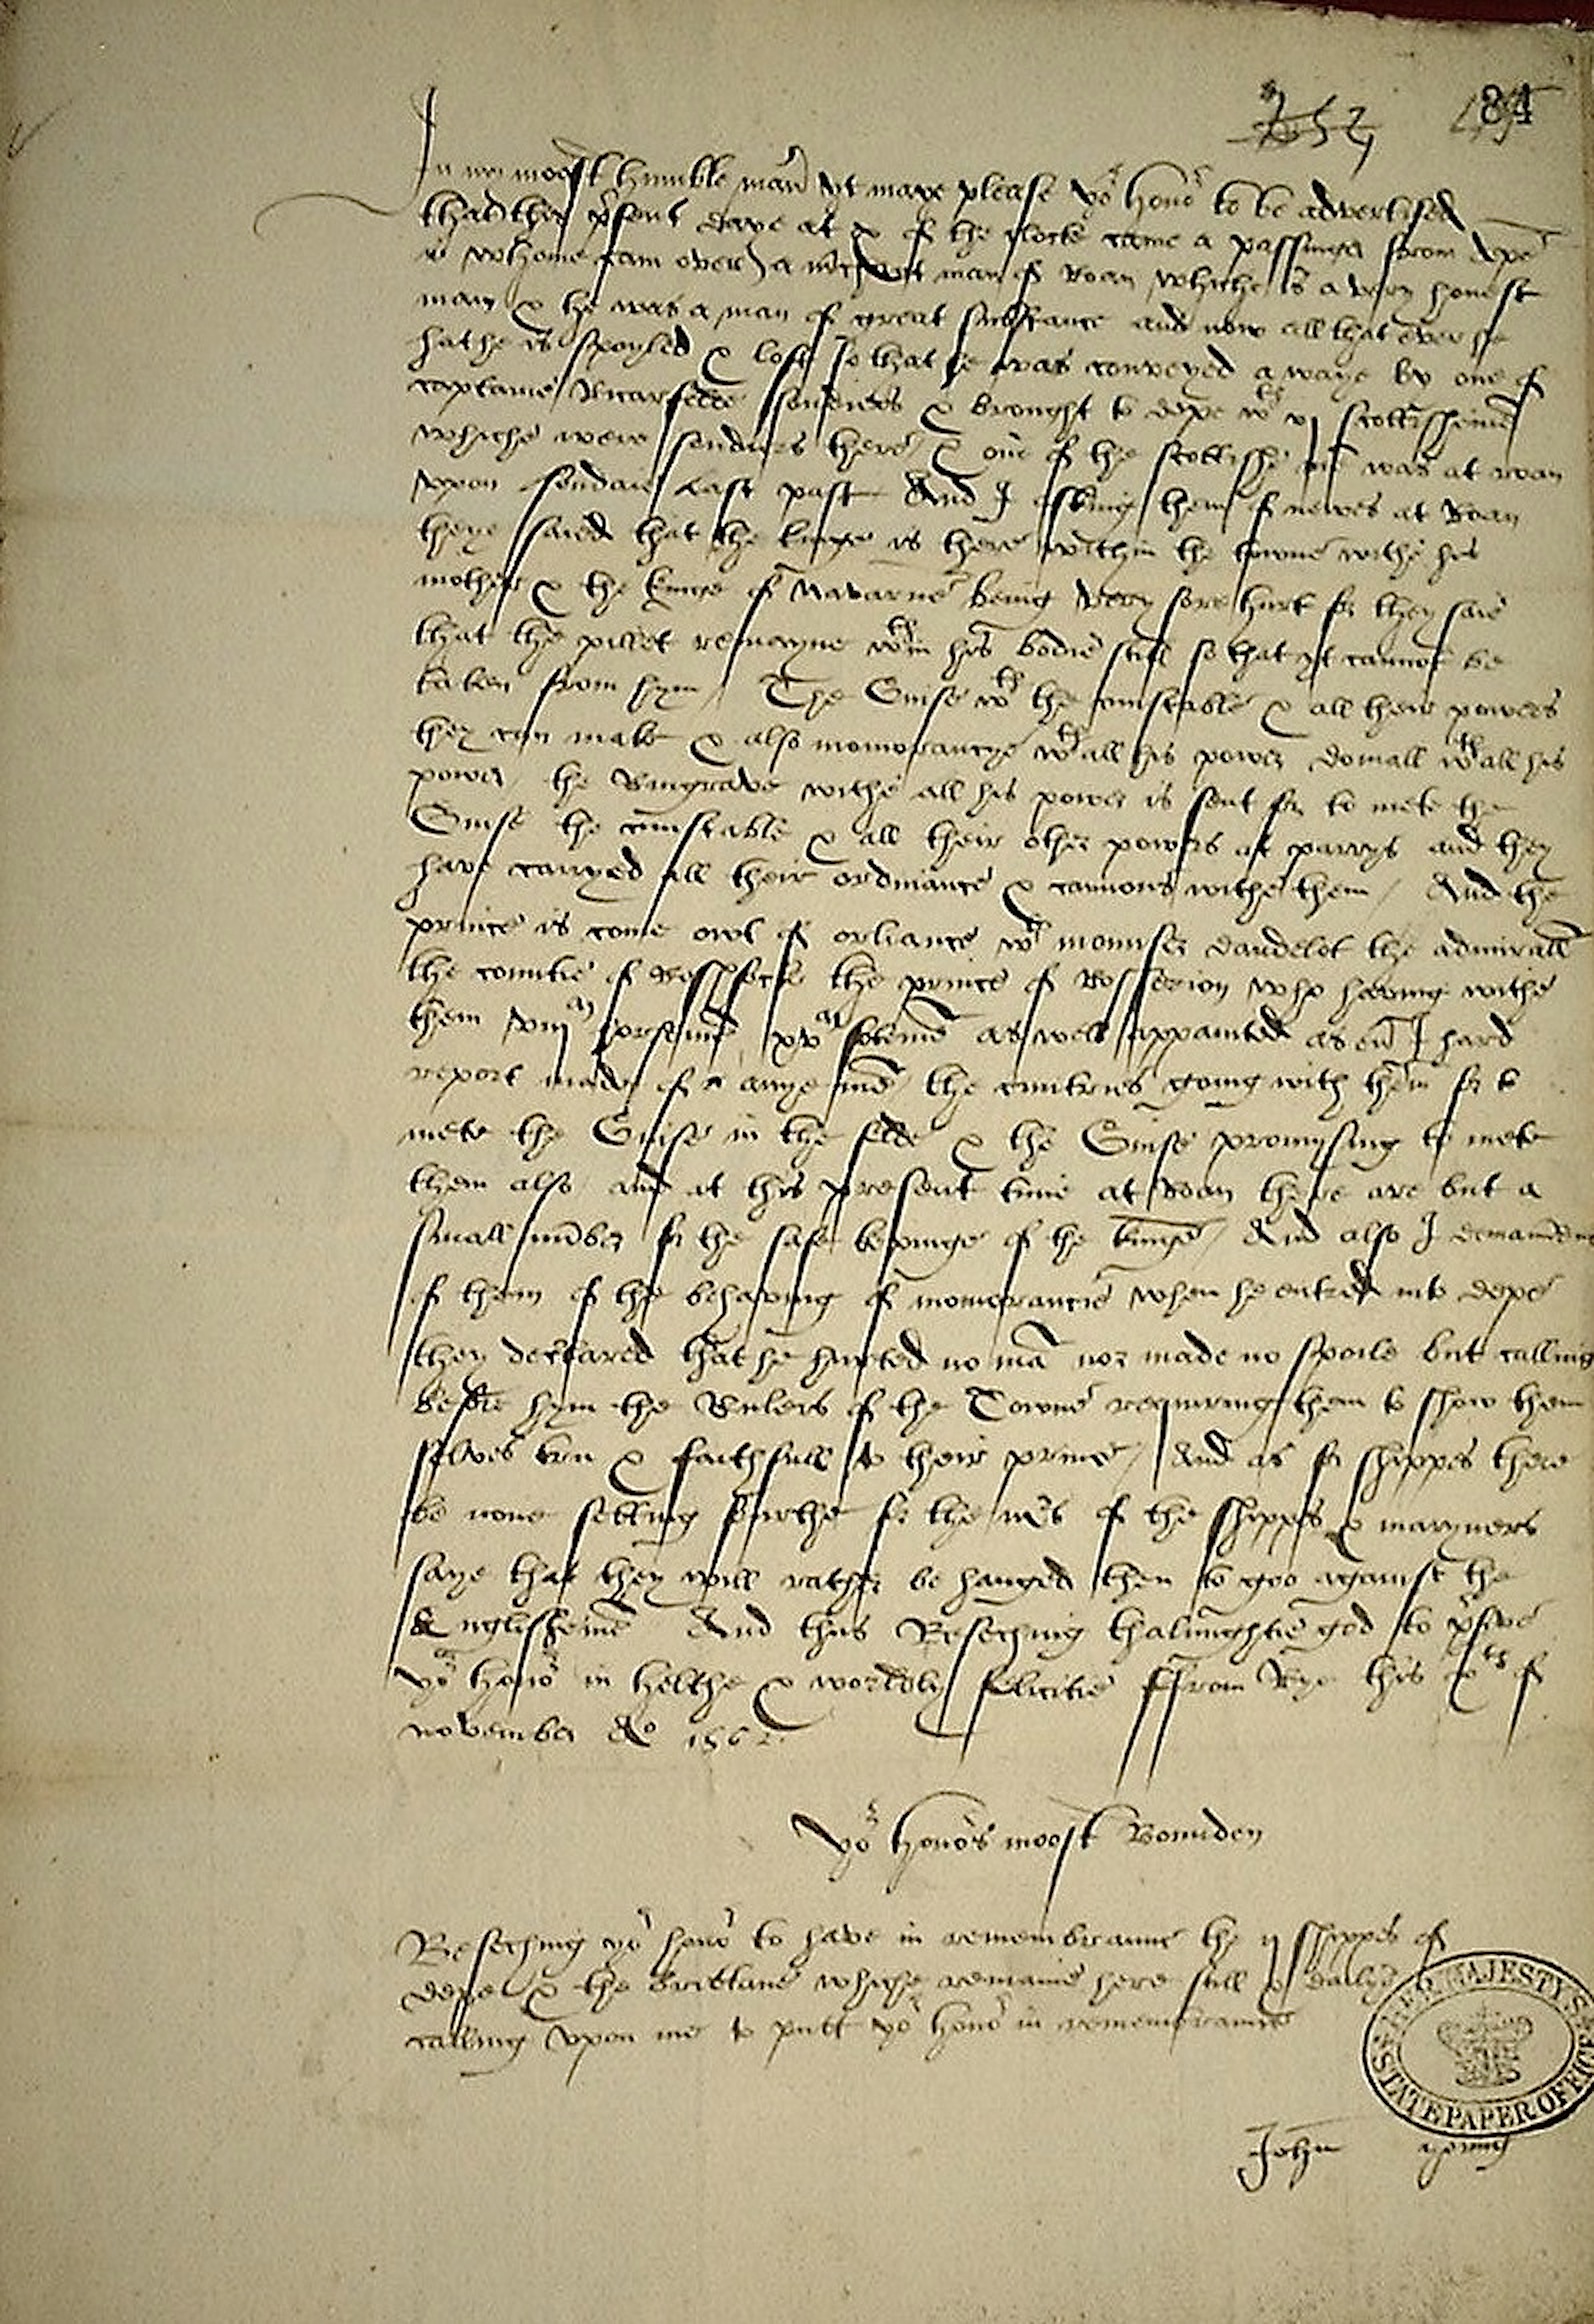 252 84
In my moost humble man̄ yt maye please yor honor to be advertised
that this p̃sent daye at x of the clocke came a passinger from depe
in whome cam over a m̃chant man of Roan whiche is a very honest
man & he was a man of great substance and now all that ever he
hathe is spoyled & lost so that he was conveyed a waye by one of
captaine soudiers & brought to depe wth vj scottishemē
whiche were soudiers there & one of the scottishe mē was at roan
vpon sondaie last past And I asking them of newes at Roan
theye saied that the kinge is there within the towne withe his
mother & the kinge of Navarne being very sore hurt for they saie
that the pillet remayne wthin his bodie still so that yt cannot be
taken from hym / The Guise wth the cunstable & all their powers
they can make & also momorancye wth all his power domall wth all his
power / the Ringrave withe all his power is sent for to mete the
Guise the cunstable & all their other powers at parrys and they
have carryed all their ordinance & cannons withe them / And the
prince is come owt of orliance wth mounser dandelot the admirall
the countie of the prince of who having withe
them viijM horsemē xvM fotemē as well appainted as eũ I hard
report made of anye mē / the cuntries going with them for to
mete the Guise in the felde & the Guise promysing to mete
them also / and at this present time at Roan there are but a
small nūber for the safe kepinge of the kinge / And also I demaunded
of them of the behaving of momorancie when he entred into depe
they declared that he hurted no mā nor made no spoile but calling
before hym the Rulers of the Towne requiring them to show them
selves tru & faithfull to their prince / And as for shippes there
be none setting furthe for the mrs of the shipps & maryners
saye that they will rather be hanged then to goo against the
Englishemē And thus Beseching thalmightie god to p̃srve
yor honor in helthe & worldly felicitie ffrom Rye this xth of
november Ao 1562
yor honors moost Bounden
Beseching yor honor to have in remembraunce the ij shippes of
depe & the brittane whiche remaine here still & dailye
calling vpon me to putt yor honor in remembraunce
HER MAJESTY'S STATE PAPER OFFICE
John yonng